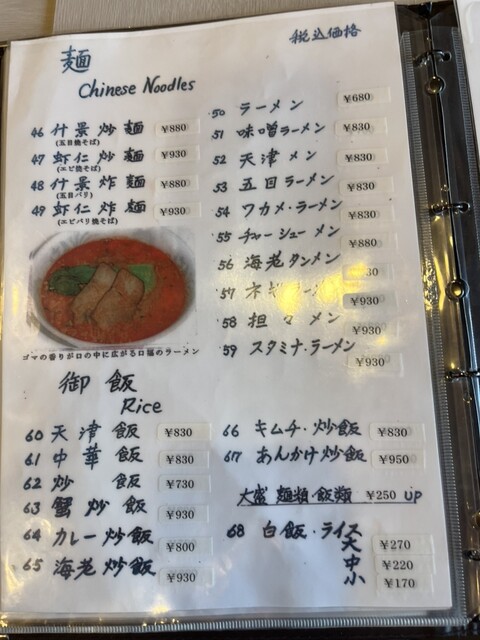 税込価格
麺
Chinese Noodles
46 什景炒麺 ¥880
(五目焼そば)
47 虾仁炒麺 ¥930
(エビ焼そば)
48 什景炸麺 ¥880
(五目バリ)
49 虾仁炸麺 ¥930
(エビバリ焼そば)
50 ラーメン ¥680
51 味噌ラーメン ¥830
52 天津メン ¥830
53 五目ラーメン ¥830
54 ワカメ・ラーメン ¥830
55 チャーシューメン ¥880
56 海老タンメン
57 ¥930
58 担々メン ¥930
59 スタミナ・ラーメン ¥930
ゴマの香りが口の中に広がる口福のラーメン
御飯
Rice
60 天津飯 ¥830
61 中華飯 ¥830
62 炒飯 ¥730
63 蟹炒飯 ¥930
64 カレー炒飯 ¥800
65 海老炒飯 ¥930
66 キムチ・炒飯 ¥830
67 あんかけ炒飯 ¥950
大盛 麺類・飯類 ¥250 UP
68 白飯・ライス
大 ¥270
中 ¥220
小 ¥170